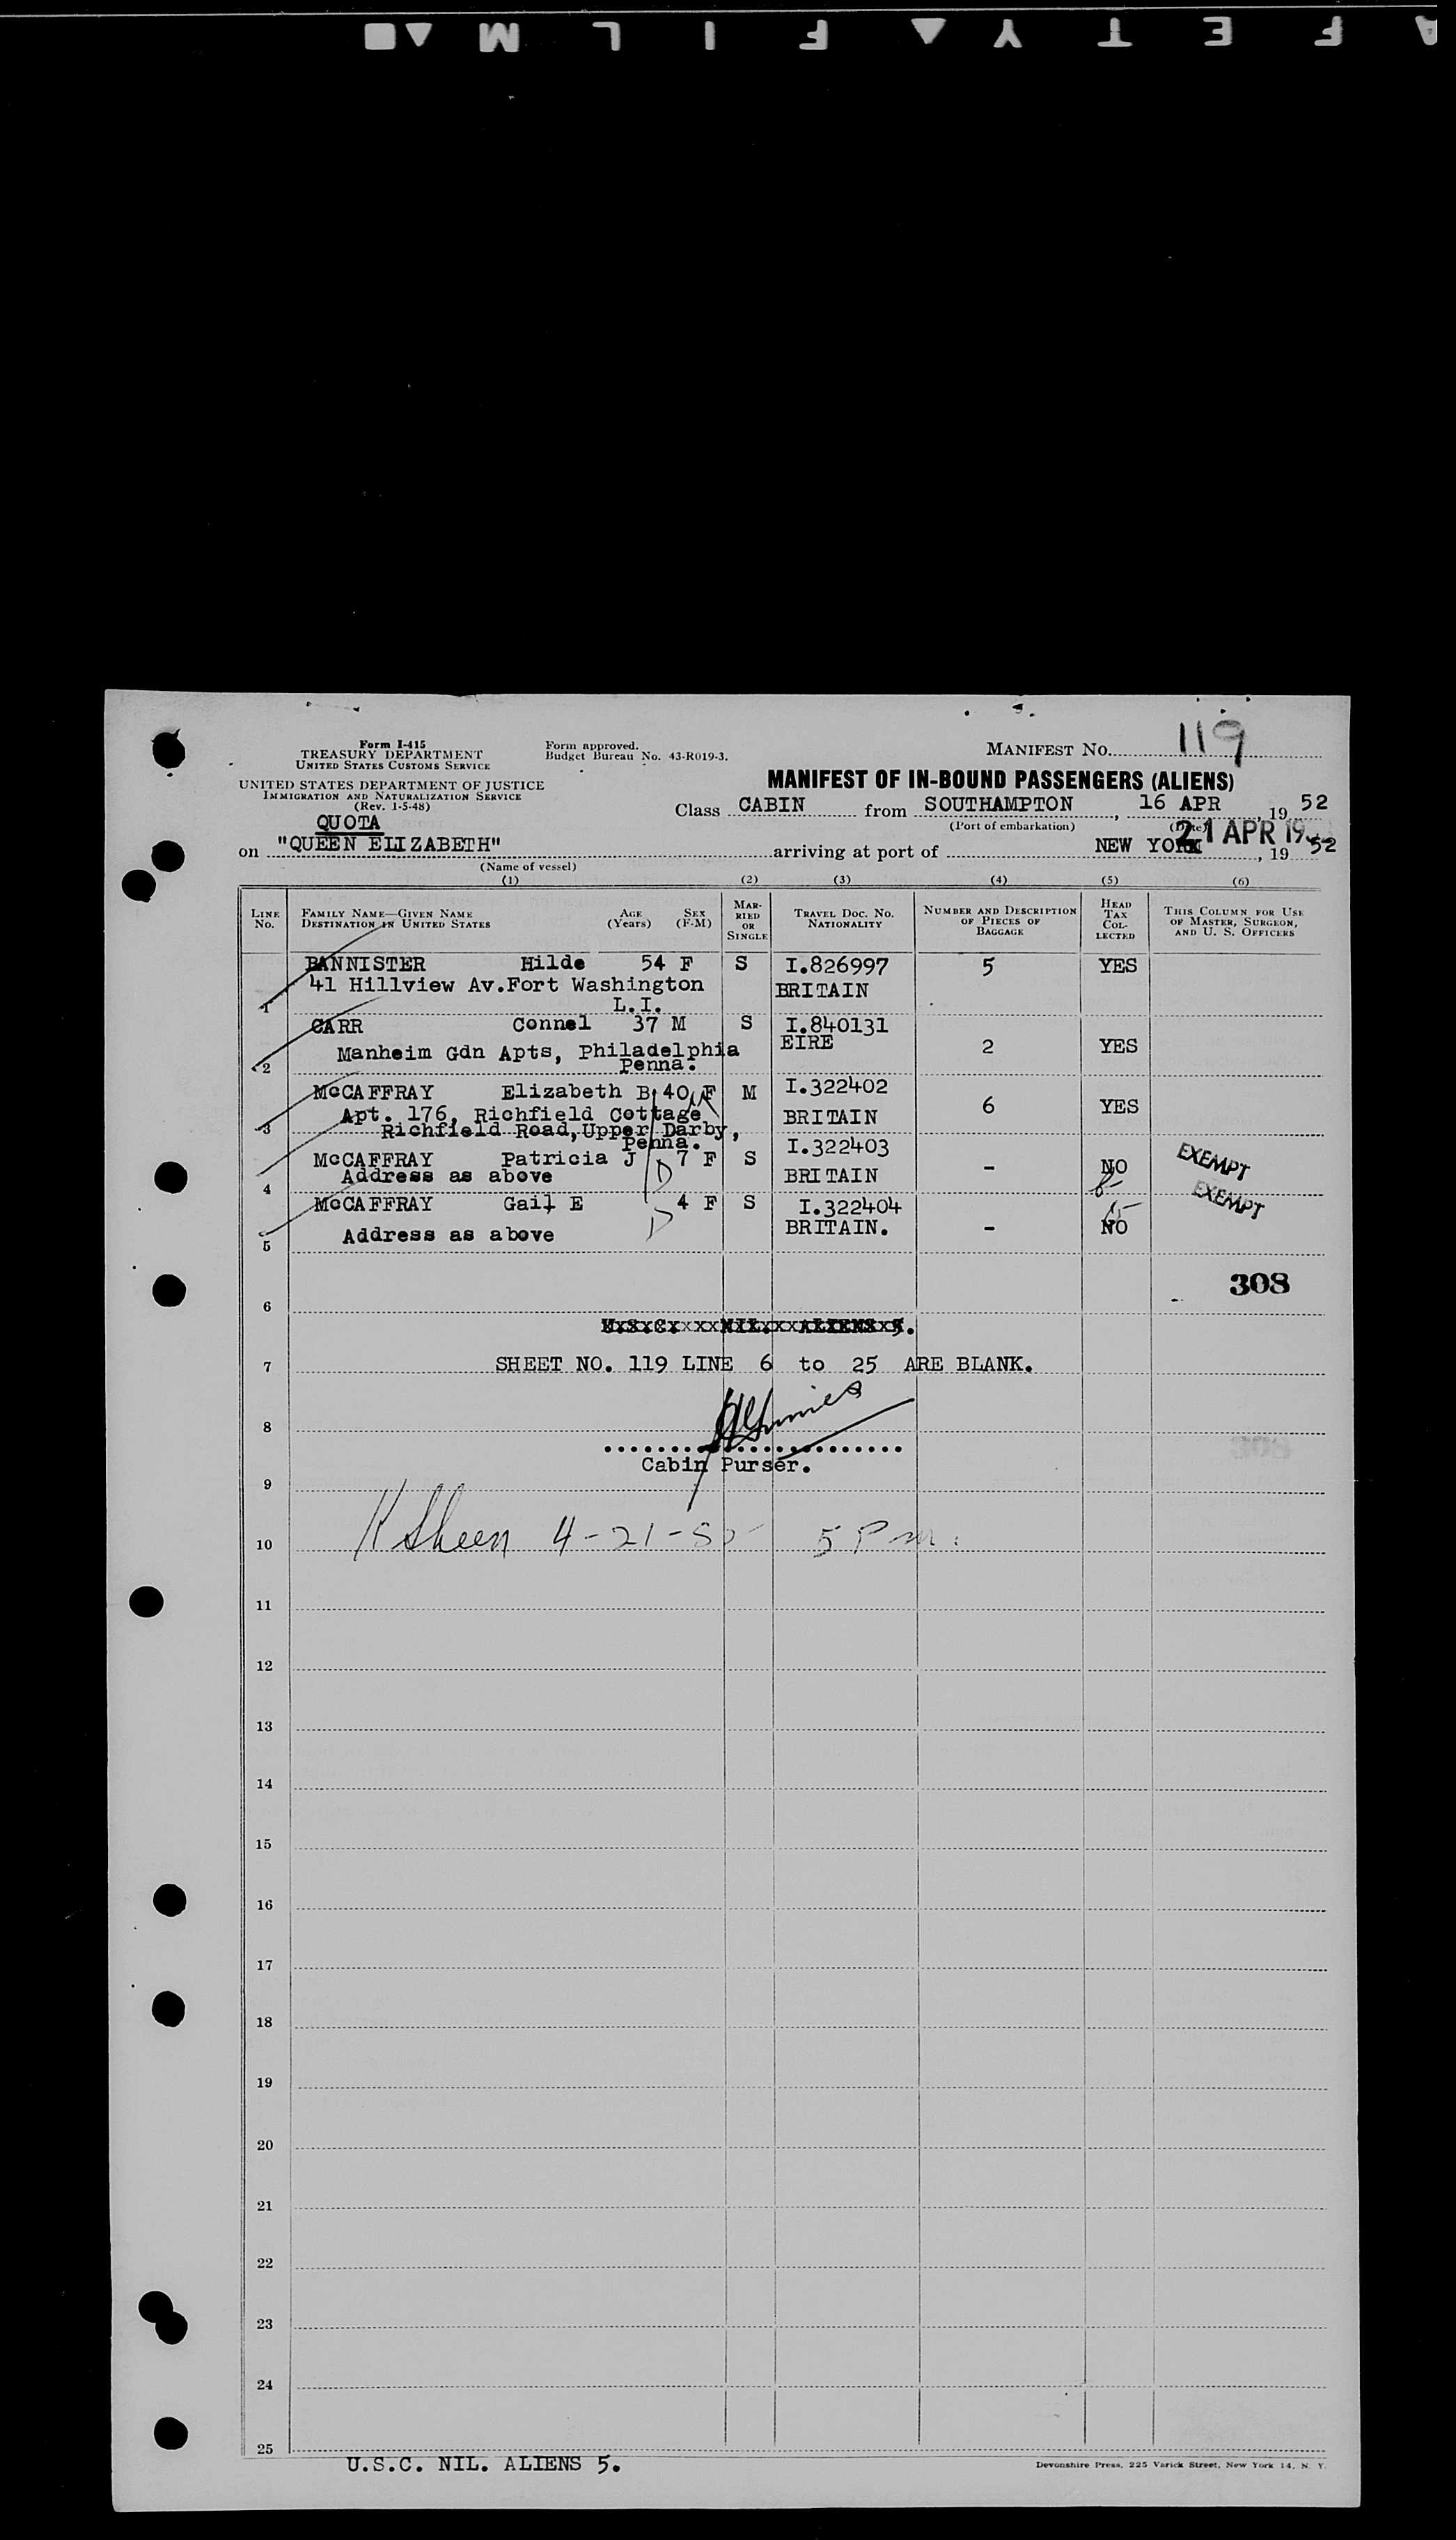 SAFETY FILM
Form I-415
TREASURY DEPARTMENT
UNITED STATES CUSTOMS SERVICE
UNITED STATES DEPARTMENT OF JUSTICE
IMMIGRATION AND NATURALIZATION SERVICE
(Rev. 1-5-48)
Form approved.
Budget Bureau No. 43-R019-3.
MANIFEST No. 119
MANIFEST OF IN-BOUND PASSENGERS (ALIENS)
Class CABIN from SOUTHAMPTON, 16 APR, 19 52
(Port of embarkation) (Date)
QUOTA
21 APR 19
on "QUEEN ELIZABETH" arriving at port of NEW YORK, 19 52
(Name of vessel)
(1) (2) (3) (4) (5) (6)
LINE No. FAMILY NAME—GIVEN NAME DESTINATION IN UNITED STATES AGE (Years) SEX (F-M) MARRIED OR SINGLE TRAVEL DOC. NO. NATIONALITY NUMBER AND DESCRIPTION OF PIECES OF BAGGAGE HEAD TAX COLLECTED THIS COLUMN FOR USE OF MASTER, SURGEON, AND U. S. OFFICERS
BANNISTER Hilde 54 F S I.826997 5 YES
41 Hillview Av.Fort Washington BRITAIN
1 L.I.
CARR Connel 37 M S I.840131
EIRE
Manheim Gdn Apts, Philadelphia 2 YES
2 Penna.
McCAFFRAY Elizabeth B 40 F M I.322402
Apt. 176, Richfield Cottage BRITAIN 6 YES
3 Richfield Road,Upper Darby,
Penna.
McCAFFRAY Patricia J 7 F S I.322403 - NO EXEMPT
4 Address as above D BRITAIN
McCAFFRAY Gail E 4 F S I.322404 EXEMPT
5 Address as above D BRITAIN. - NO
308
6
U.S.C. NIL. ALIENS 5.
7 SHEET NO. 119 LINE 6 to 25 ARE BLANK.
8
Cabin Purser.
9
10 K Sheen 4-21-52 5 Pm.
11
12
13
14
15
16
17
18
19
20
21
22
23
24
25
U.S.C. NIL. ALIENS 5.
Devonshire Press, 225 Varick Street, New York 14, N. Y.